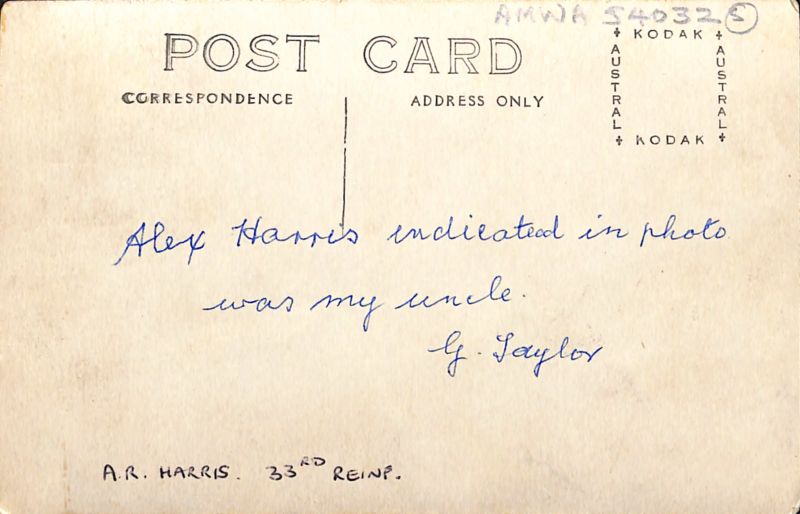 AMWA 54032 5
POST CARD
CORRESPONDENCE
ADDRESS ONLY
KODAK
AUSTRAL
AUSTRAL
KODAK
Alex Harris indicated in photo
was my uncle.
G. Taylor
A.R. HARRIS. 33RD REINF.